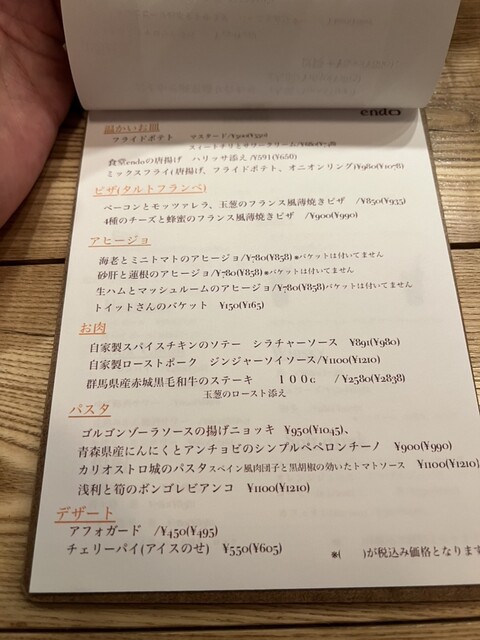 endo
温かいお皿
フライドポテト マスタード/¥500(¥550)
スイートチリとサワークリーム
食堂endoの唐揚げ ハリッサ添え/¥591(¥650)
ミックスフライ(唐揚げ、フライドポテト、オニオンリング)¥980(¥1078)
ピザ(タルトフランベ)
ベーコンとモッツァレラ、玉葱のフランス風薄焼きピザ /¥850(¥935)
4種のチーズと蜂蜜のフランス風薄焼きピザ /¥900(¥990)
アヒージョ
海老とミニトマトのアヒージョ/¥780(¥858)※バケットは付いてません
砂肝と蓮根のアヒージョ/¥780(¥858)※バケットは付いてません
生ハムとマッシュルームのアヒージョ/¥780(¥858)バケットは付いてません
トイットさんのバケット ¥150(¥165)
お肉
自家製スパイスチキンのソテー シラチャーソース ¥891(¥980)
自家製ローストポーク ジンジャーソイソース/¥1100(¥1210)
群馬県産赤城黒毛和牛のステーキ 100G /¥2580(¥2838)
玉葱のロースト添え
パスタ
ゴルゴンゾーラソースの揚げニョッキ ¥950(¥1045)、
青森県産にんにくとアンチョビのシンプルペペロンチーノ ¥900(¥990)
カリオストロ城のパスタスペイン風肉団子と黒胡椒の効いたトマトソース ¥1100(¥1210)
浅利と筍のボンゴレビアンコ ¥1100(¥1210)
デザート
アフォガード /¥450(¥495)
チェリーパイ(アイスのせ) ¥550(¥605)
※( )が税込み価格となります